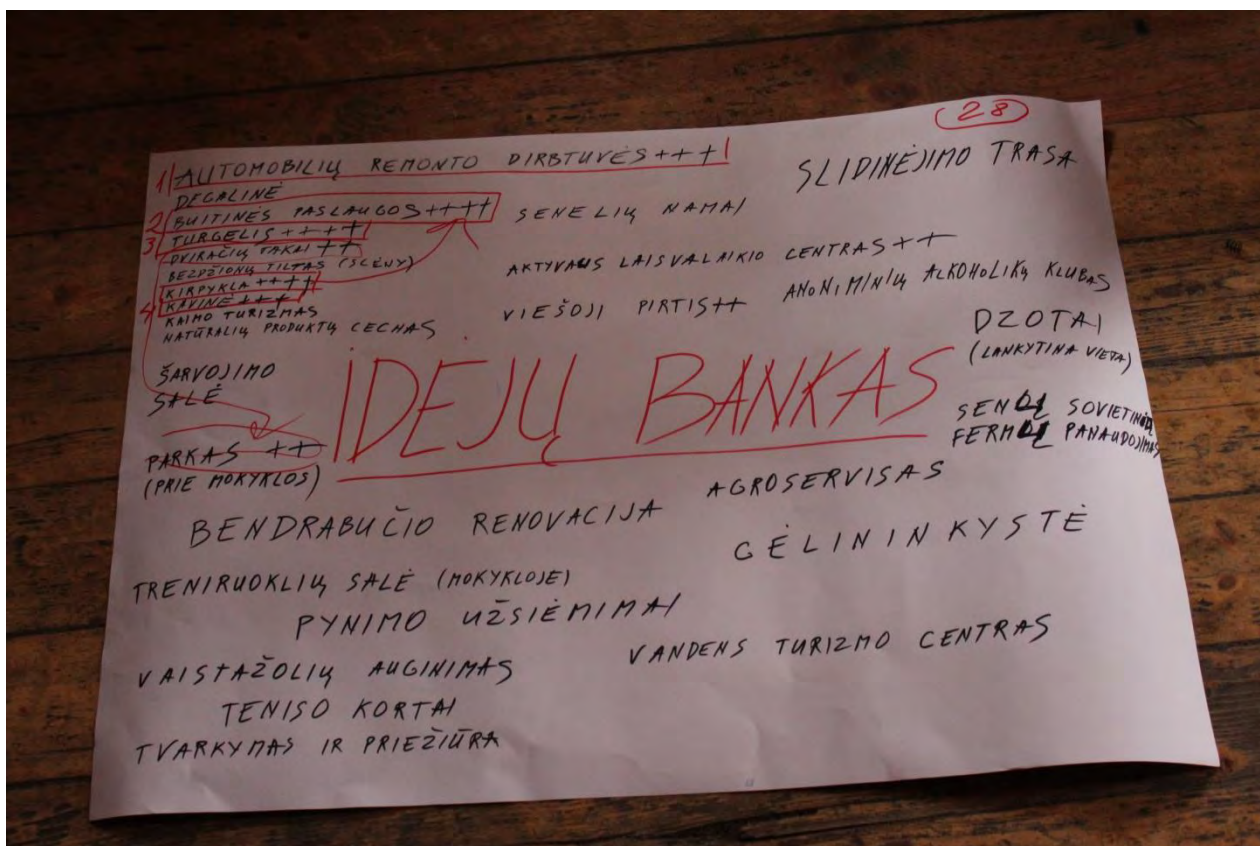 28
1 AUTOMOBILIŲ REMONTO DIRBTUVĖS +++
DEGALINĖ
2 BUITINĖS PASLAUGOS ++++
3 TURGELIS ++++
DVIRAČIŲ TAKAI ++
BEZDŽIONŲ TILTAS (SLĖNY)
KIRPYKLA ++++
4 KAVINĖ +++
KAIMO TURIZMAS
NATŪRALIŲ PRODUKTŲ CECHAS
ŠARVOJIMO
SALĖ
PARKAS ++
(PRIE MOKYKLOS)
SLIDINĖJIMO TRASA
SENELIŲ NAMAI
AKTYVAUS LAISVALAIKIO CENTRAS ++
VIEŠOJI PIRTIS ++
ANONIMINIŲ ALKOHOLIKŲ KLUBAS
DZOTAI
(LANKYTINA VIETA)
IDĖJŲ BANKAS
SENŲ SOVIETINIŲ
FERMŲ PANAUDOJIMAS
AGROSERVISAS
BENDRABUČIO RENOVACIJA
GĖLININKYSTĖ
TRENIRUOKLIŲ SALĖ (MOKYKLOJE)
PYNIMO UŽSIĖMIMAI
VANDENS TURIZMO CENTRAS
VAISTAŽOLIŲ AUGINIMAS
TENISO KORTAI
TVARKYMAS IR PRIEŽIŪRA